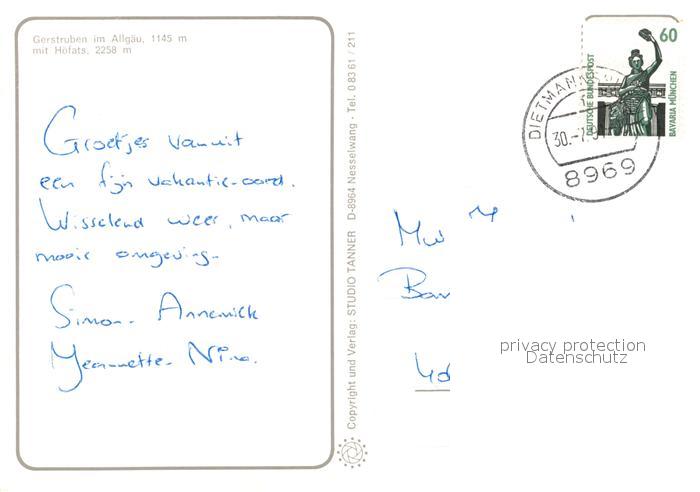 Gerstruben im Allgäu, 1145 m
mit Höfats, 2258 m
Groetjes vanuit
een fijn vakantie-oord.
Wisselend weer, maar
mooie omgeving.
Simon. Annemiek
Jeannette. Nina.
Copyright und Verlag: STUDIO TANNER D-8964 Nesselwang · Tel. 0 83 61 / 211
60
DEUTSCHE BUNDESPOST
BAVARIA MÜNCHEN
30.-7.
8969
privacy protection
Datenschutz